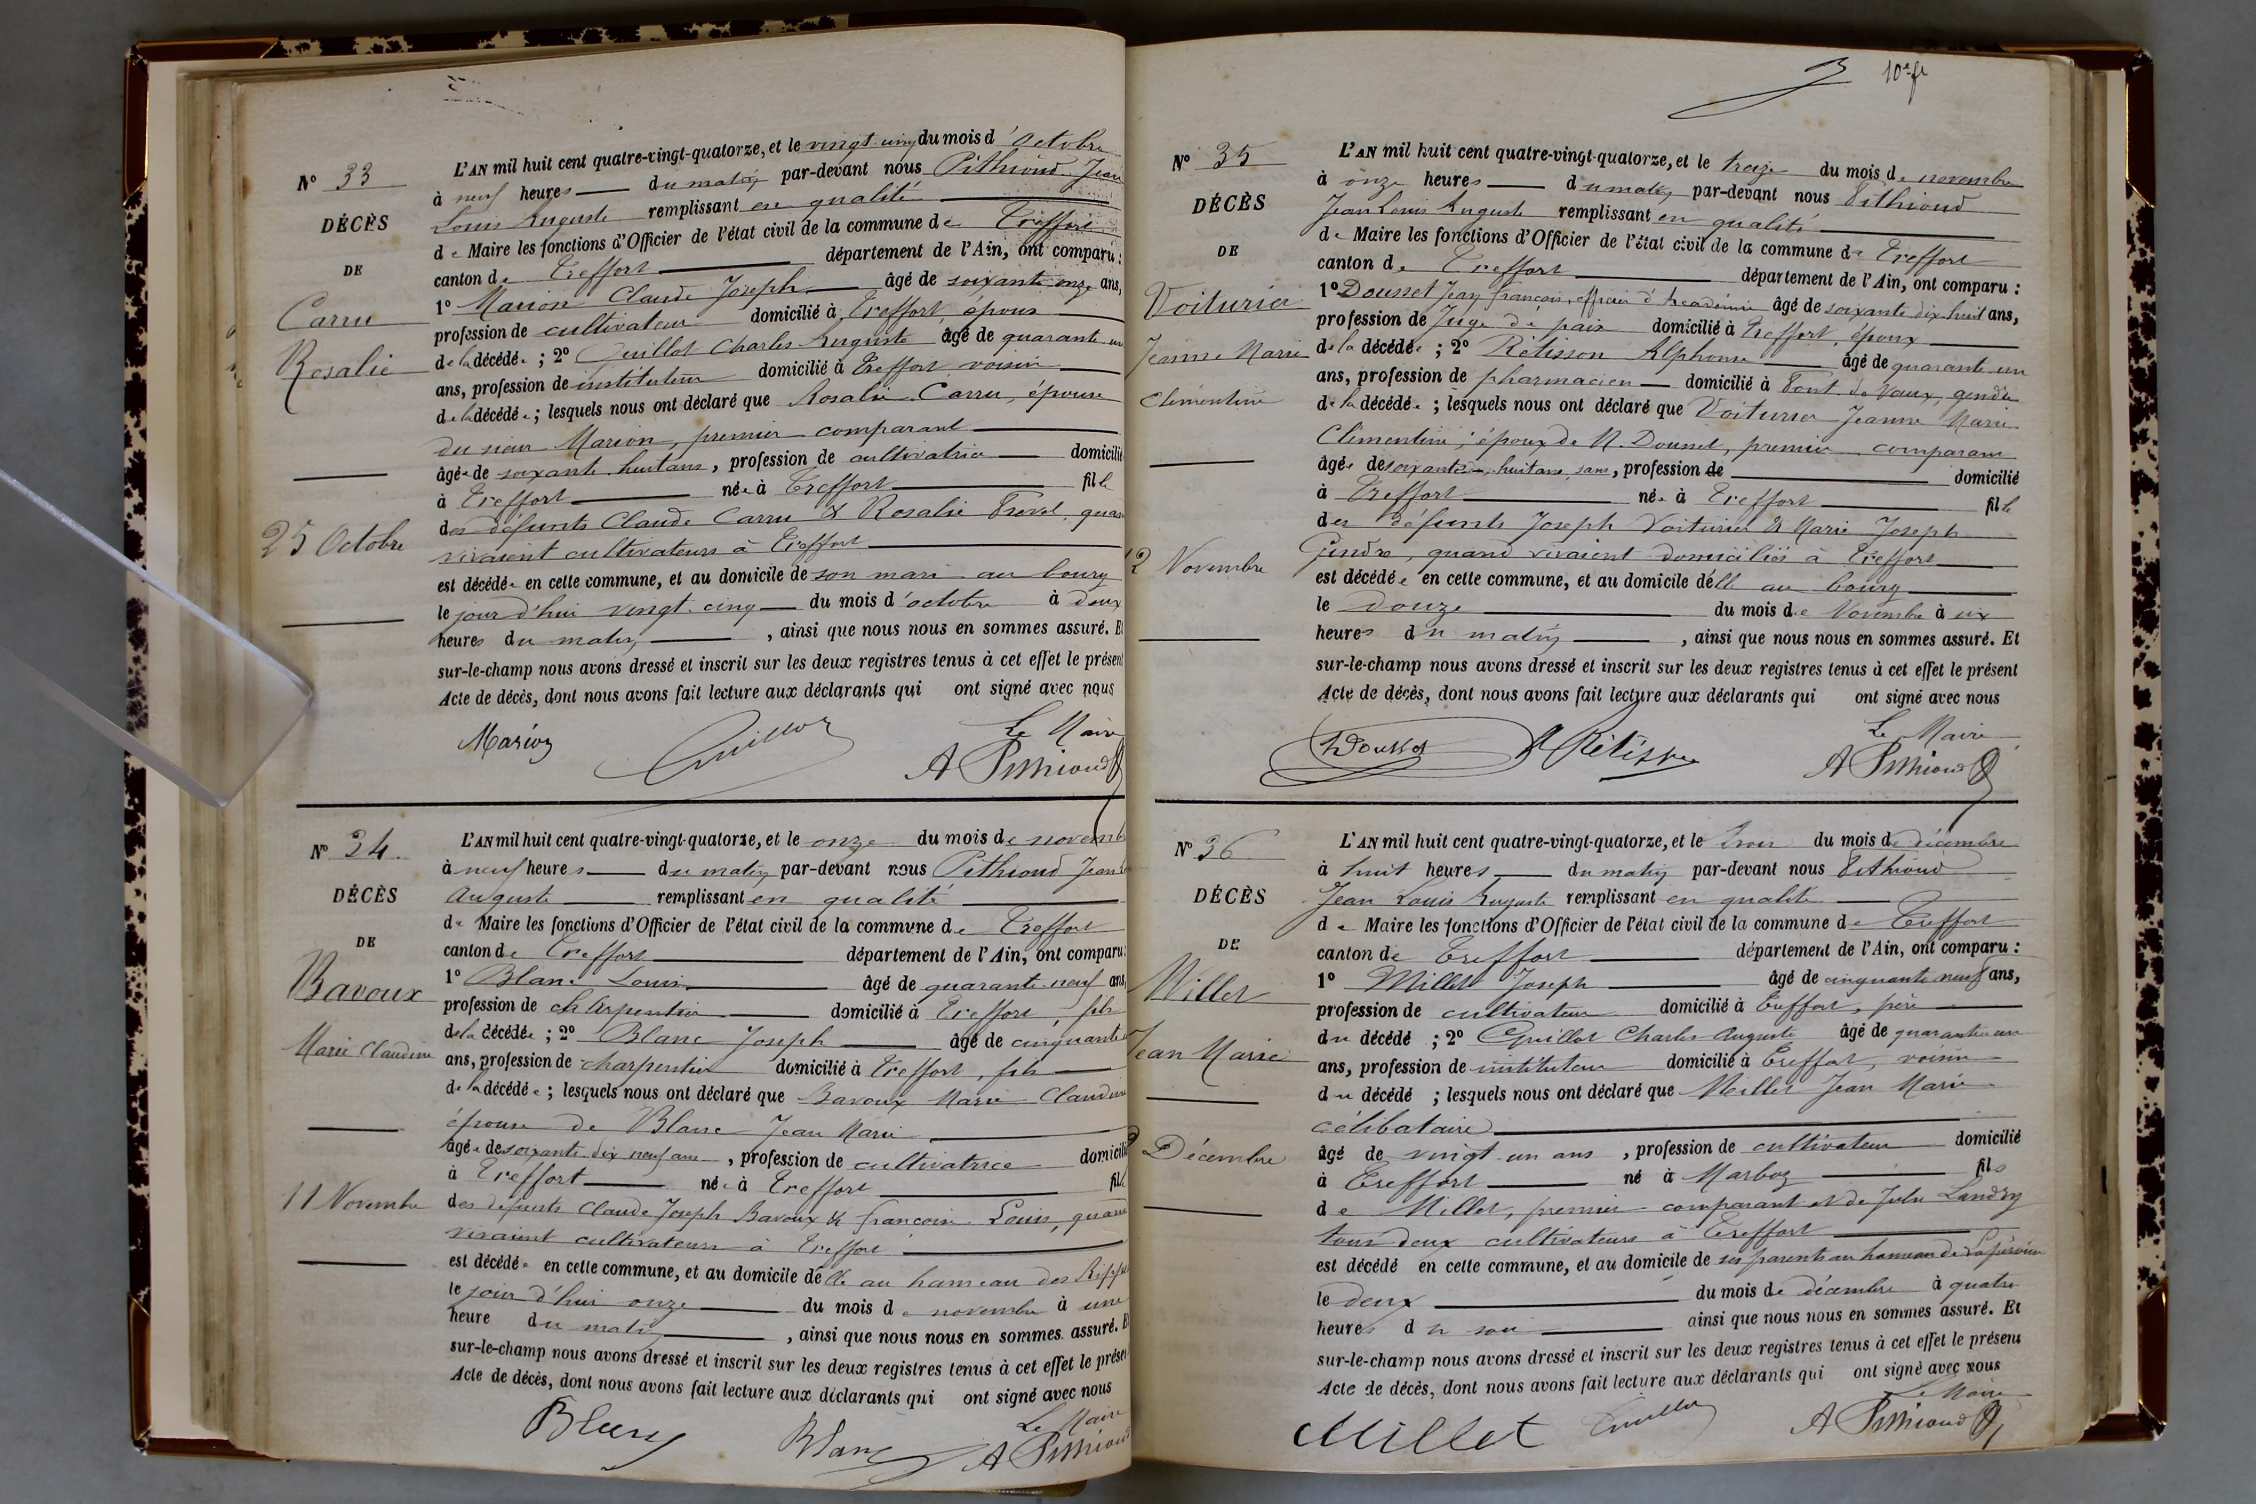 N° 33
DÉCÈS
DE
Carru
Rosalie
25 Octobre
L'AN mil huit cent quatre-vingt-quatorze, et le vingt-cinq du mois d'octobre
à neuf heures du matin par-devant nous Pithioud Jean
Louis Auguste remplissant en qualité
de Maire les fonctions d'Officier de l'état civil de la commune de Treffort
canton de Treffort département de l'Ain, ont comparu :
1° Marion Claude Joseph âgé de soixante onze ans,
profession de cultivateur domicilié à Treffort, époux
de la décédée ; 2° Guillot Charles Auguste âgé de quarante un
ans, profession de instituteur domicilié à Treffort voisin
de la décédée ; lesquels nous ont déclaré que Rosalie Carru, épouse
du sieur Marion, premier comparant
âgée de soixante huit ans, profession de cultivatrice domicilié
à Treffort née à Treffort fille
des défunts Claude Carru & Rosalie quan
vivaient cultivateurs à Treffort
est décédée en cette commune, et au domicile de son mari au bourg
le jour d'hui vingt-cinq du mois d'octobre à deux
heures du matin, ainsi que nous nous en sommes assuré. Et
sur-le-champ nous avons dressé et inscrit sur les deux registres tenus à cet effet le présent
Acte de décès, dont nous avons fait lecture aux déclarants qui ont signé avec nous
Le Maire
Marion Guillot A Pithioud
N° 34.
DÉCÈS
DE
Bavoux
Marie Claudine
11 Novembre
L'AN mil huit cent quatre-vingt-quatorze, et le onze du mois de novemb
à neuf heures du matin par-devant nous Pithioud Jean
Auguste remplissant en qualité
de Maire les fonctions d'Officier de l'état civil de la commune de Treffort
canton de Treffort département de l'Ain, ont comparu :
1° Blanc Louis âgé de quarante-neuf ans,
profession de charpentier domicilié à Treffort, fils
de la décédée ; 2° Blanc Joseph âgé de cinquante
ans, profession de charpentier domicilié à Treffort, fils
de la décédée ; lesquels nous ont déclaré que Bavoux Marie Claudine
épouse de Blanc Jean Marie
âgée de soixante dix neuf ans, profession de cultivatrice domicilié
à Treffort née à Treffort fille
des défunts Claude Joseph Bavoux & françoise Louis, quand
vivaient cultivateurs à Treffort
est décédée en cette commune, et au domicile d'elle au hameau des Ripp
le jour d'hui onze du mois de novembre à une
heure du matin, ainsi que nous nous en sommes assuré. E
sur-le-champ nous avons dressé et inscrit sur les deux registres tenus à cet effet le prése
Acte de décès, dont nous avons fait lecture aux déclarants qui ont signé avec nous
Le Maire
Blanc Blanc A Pithioud
10e f
N° 35
DÉCÈS
DE
Voiturier
Jeanne Marie
Clémentine
12 Novembre
L'AN mil huit cent quatre-vingt-quatorze, et le treize du mois de novembre
à onze heures du matin par-devant nous Pithioud
Jean Louis Auguste remplissant en qualité
de Maire les fonctions d'Officier de l'état civil de la commune de Treffort
canton de Treffort département de l'Ain, ont comparu :
1° Dousset Jean françois, officier d'Académie âgé de soixante dix-huit ans,
profession de Juge de paix domicilié à Treffort, époux
de la décédée ; 2° Rétisson Alphonse âgé de quarante un
ans, profession de pharmacien domicilié à Pont de Vaux, gendre
de la décédée ; lesquels nous ont déclaré que Voiturier Jeanne Marie
Clémentine, époux de M. Dousset, premier comparant
âgée de soixante-huit ans, sans, profession de domicilié
à Treffort née à Treffort fille
des défunts Joseph Voiturier & Marie Joseph
Gindre, quand vivaient domiciliés à Treffort
est décédée en cette commune, et au domicile d'elle au bourg
le Douze du mois de Novembre à six
heures du matin, ainsi que nous nous en sommes assuré. Et
sur-le-champ nous avons dressé et inscrit sur les deux registres tenus à cet effet le présent
Acte de décès, dont nous avons fait lecture aux déclarants qui ont signé avec nous
Le Maire
Dousset A Rétisson A Pithioud
N° 36
DÉCÈS
DE
Millet
Jean Marie
Décembre
L'AN mil huit cent quatre-vingt-quatorze, et le trois du mois de décembre
à huit heures du matin par-devant nous Pithioud
Jean Louis Auguste remplissant en qualité
de Maire les fonctions d'Officier de l'état civil de la commune de Treffort
canton de Treffort département de l'Ain, ont comparu :
1° Millet Joseph âgé de cinquante neuf ans,
profession de cultivateur domicilié à Treffort, père
du décédé ; 2° Guillot Charles Auguste âgé de quarante un
ans, profession de instituteur domicilié à Treffort, voisin
du décédé ; lesquels nous ont déclaré que Millet Jean Marie
célibataire
âgé de vingt-un ans, profession de cultivateur domicilié
à Treffort né à Marboz fils
de Millet, premier comparant et de Julie Landry
tous deux cultivateurs à Treffort
est décédé en cette commune, et au domicile de ses parents au hameau de
le deux du mois de décembre à quatre
heures du soir ainsi que nous nous en sommes assuré. Et
sur-le-champ nous avons dressé et inscrit sur les deux registres tenus à cet effet le présent
Acte de décès, dont nous avons fait lecture aux déclarants qui ont signé avec nous
Le Maire
Millet Guillot A Pithioud